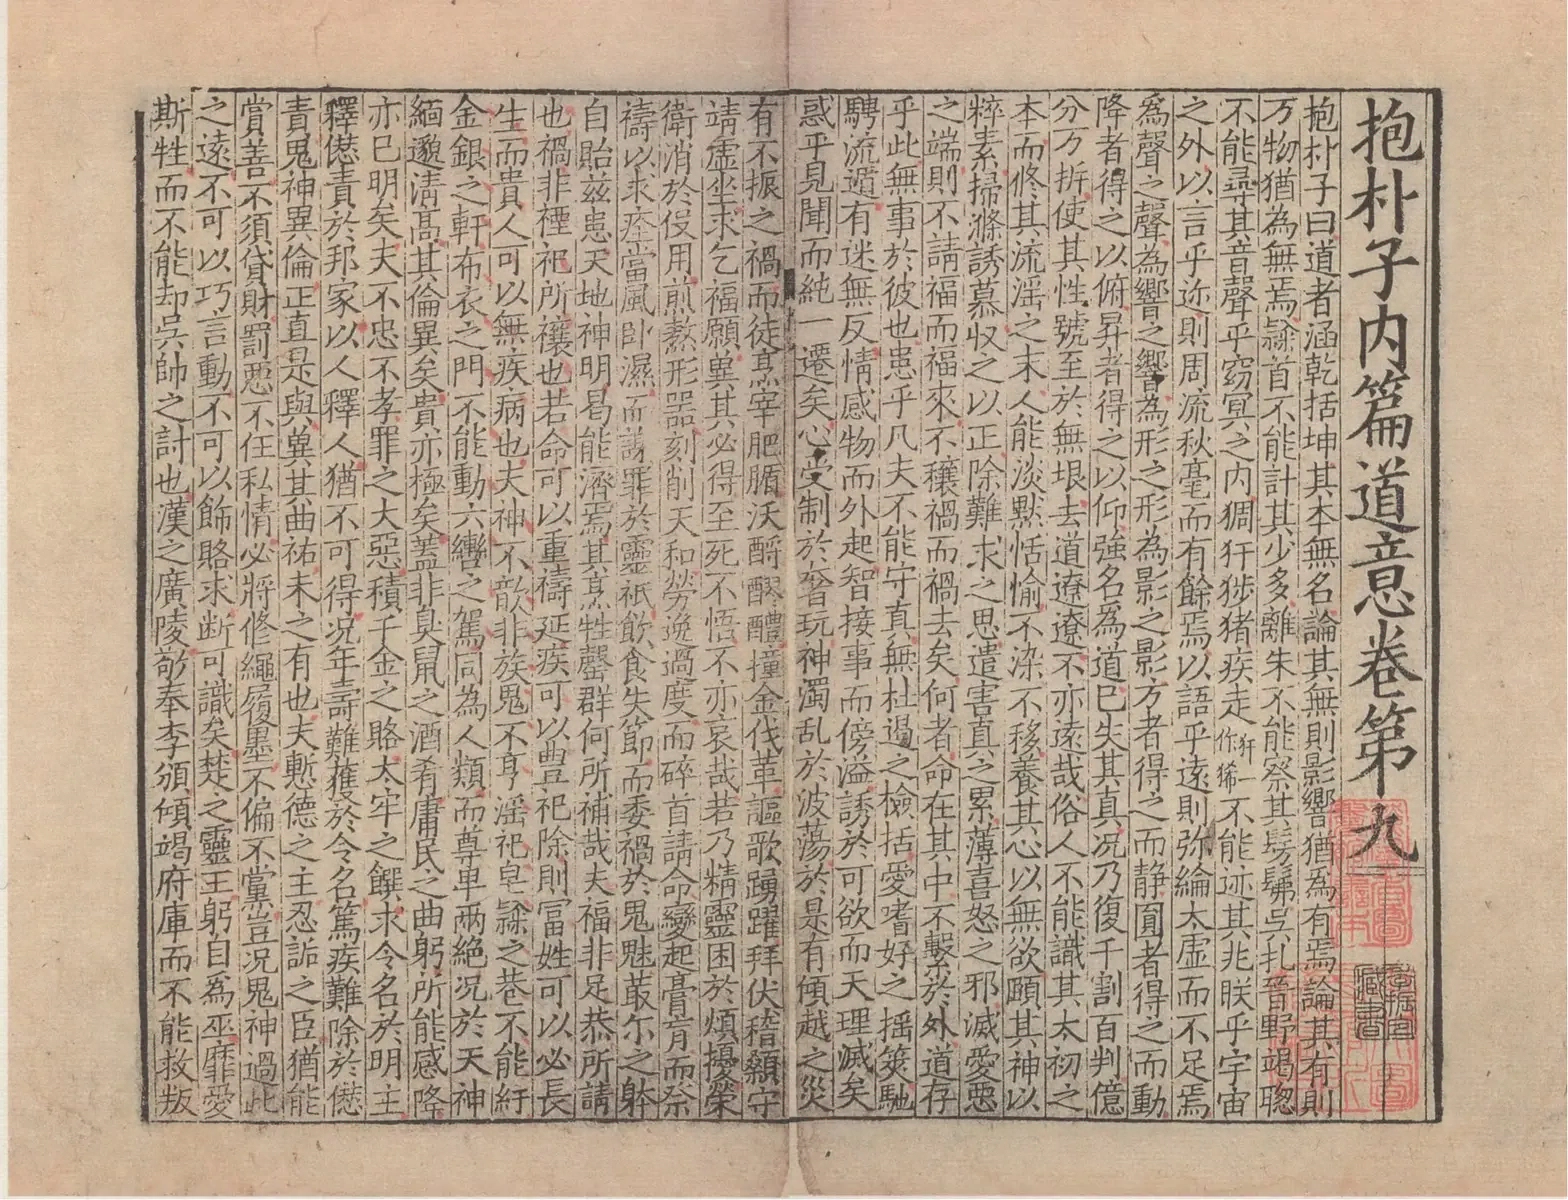 抱朴子内篇道意卷第九
抱朴子曰道者涵乾括坤其本無名論其無則影響猶爲有焉論其有則
万物猶為無焉隸首不能計其少多離朱不能察其髣髴吴札晉野竭聦
不能尋其音聲乎窈冥之内猲犴猣猪疾走犴一作狶不能迹其兆眹乎宇宙
之外以言乎迩則周流秋毫而有餘焉以語乎遠則弥綸太虚而不足焉
爲聲之聲為響之響為形之形為影之影方者得之而静圎者得之而動
降者得之以俯昇者得之以仰強名為道已失其真况乃復千割百判億
分万拆使其性號至於無垠去道遼遼不亦遠哉俗人不能識其太初之
本而修其流淫之末人能淡黙恬愉不染不移養其心以無欲頤其神以
粹素掃滌誘慕收之以正除難求之思遣害真之累薄喜怒之邪滅愛惡
之端則不請福而福來不穰禍而禍去矣何者命在其中不繫於外道存
乎此無事於彼也患乎凡夫不能守真無杜遏之檢括愛嗜好之揺䇿馳
騁流遁有迷無反情感物而外起智接事而傍溢誘於可欲而天理滅矣
惑乎見聞而純一遷矣心受制於奢玩神濁乱於波蕩於是有傾越之災
有不振之禍而徒烹宰肥腯沃酹醪醴撞金伐革謳歌踴躍拜伏稽顙守
靖虚坐求乞福願兾其必得至死不悟不亦哀哉若乃精靈困於煩擾榮
衛消於伇用煎熬形噐刻削天和勞逸過度而碎首請命變起膏肓而祭
禱以求痊當風卧濕而謝罪於靈祇飲食失節而委禍於鬼魅蕞尓之躰
自貽兹患天地神明曷能濟焉其烹牲罄群何所補哉夫福非足恭所請
也禍非禋祀所禳也若命可以重禱延疾可以豊祀除則冨姓可以必長
生而貴人可以無疾病也夫神不歆非族鬼不享淫祀皂隸之巷不能紆
金銀之軒布衣之門不能動六轡之駕同為人類而尊卑兩絶况於天神
緬邈清髙其倫異矣貴亦極矣蓋非臭鼠之酒肴庸民之曲躬所能感降
亦已明矣夫不忠不孝罪之大惡積千金之賂太牢之饌求令名於明主
釋愆責於邦家以人釋人猶不可得况年壽難獲於令名篤疾難除於愆
責鬼神異倫正直是與兾其曲祐未之有也夫慙德之主忍詬之臣猶能
賞善不須貸財罰惡不任私情必將修繩履墨不偏不黨豈况鬼神過此
之遠不可以巧言動不可以飾賂求断可識矣楚之靈王躬自爲巫靡愛
斯牲而不能却吳帥之討也漢之廣陵敬奉李湏傾竭府庫而不能救叛